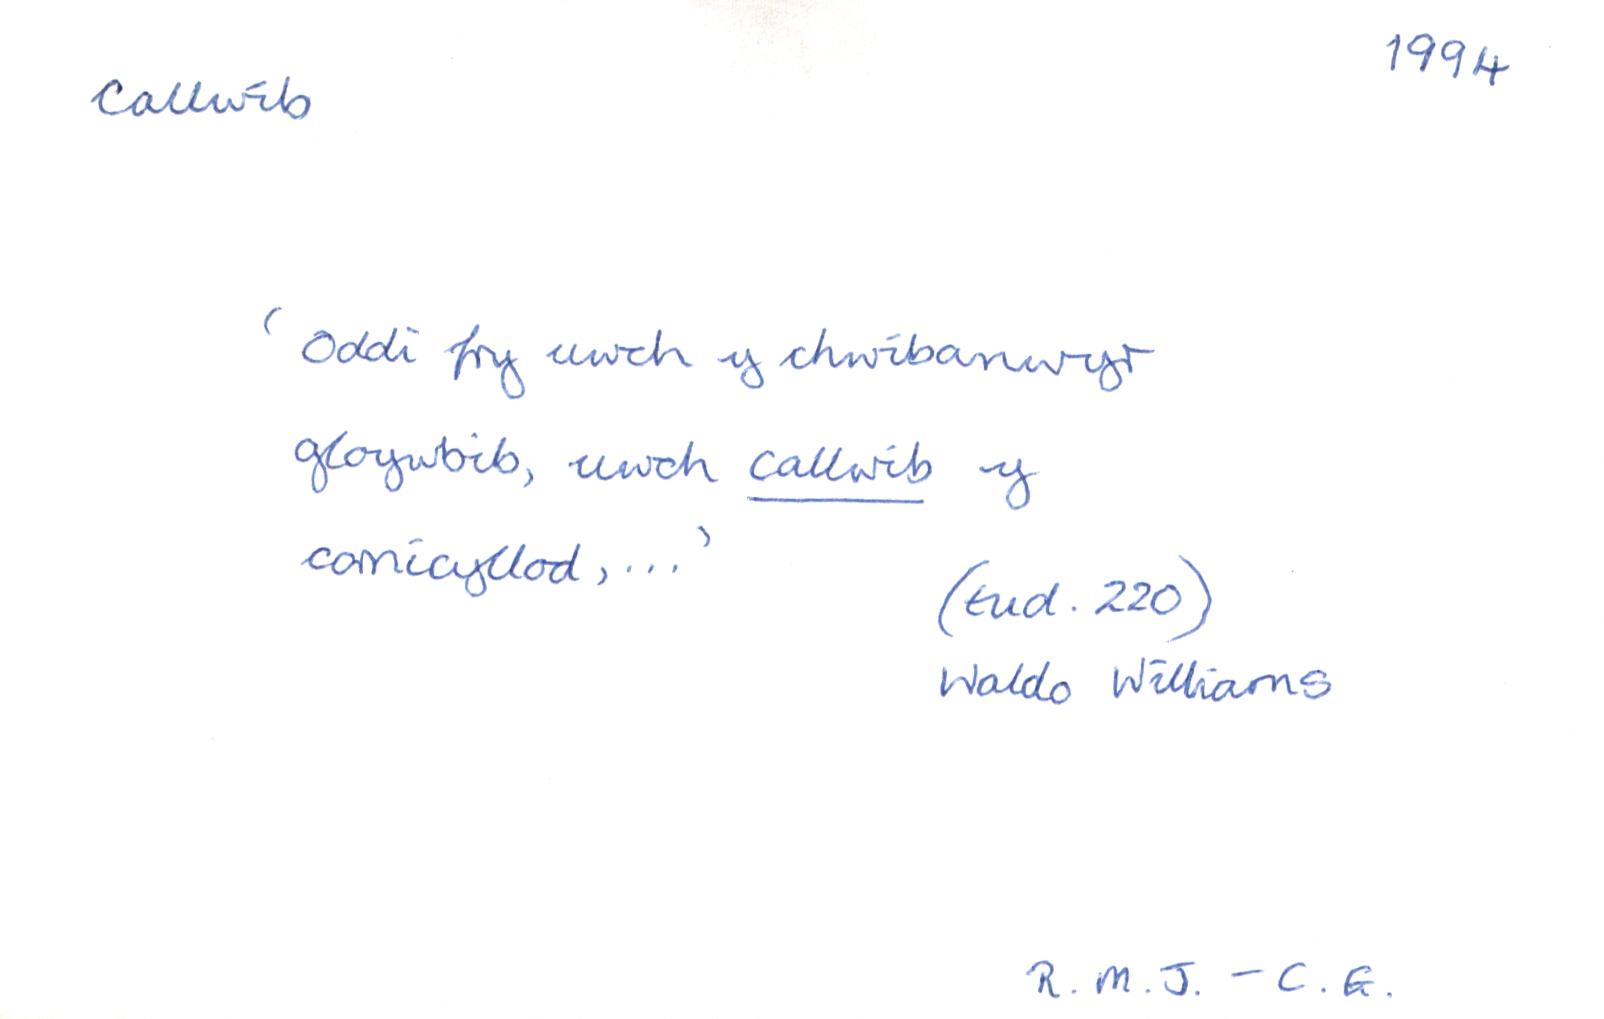 Callwib
1994
'Oddi fry uwch y chwibanwyr
gloywbib, uwch callwib y
cornicyllod, ...'
(Eud. 220)
Waldo Williams
R. M. J. – C. G.